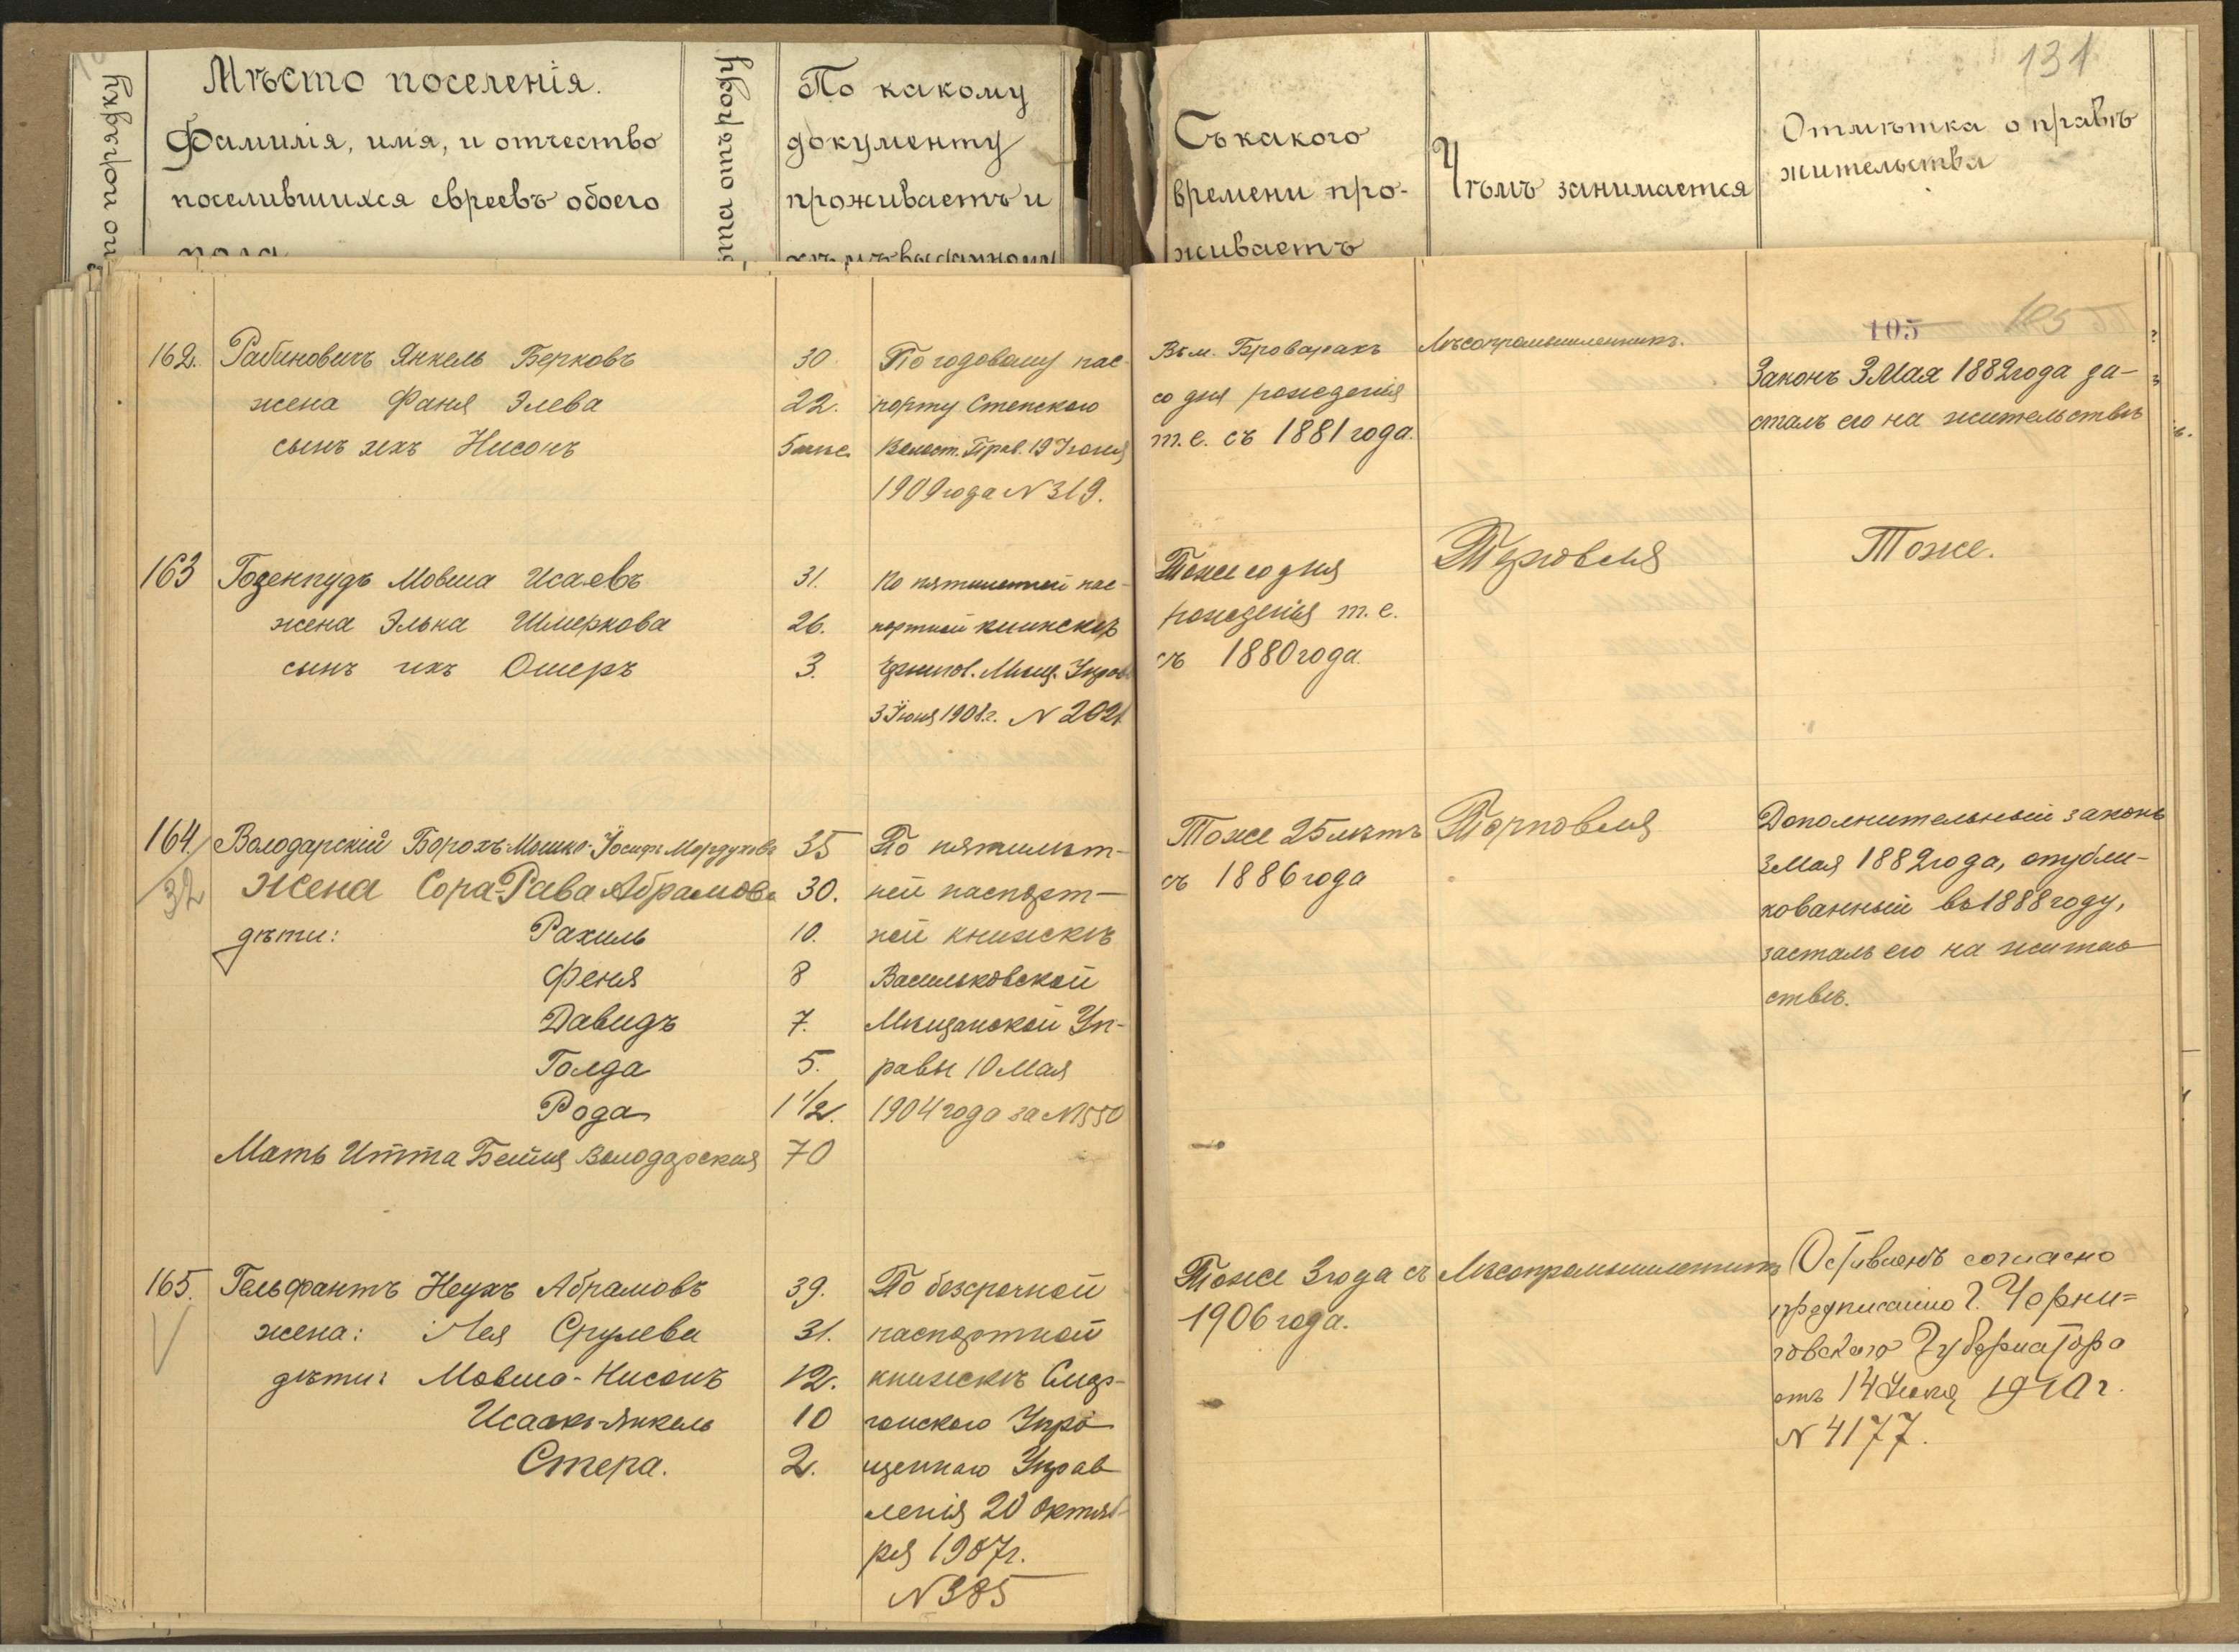 по порядку
Мѣсто поселенія.
Фамилія, имя, и отчество
поселившихся евреевъ обоего
пола
лѣта отъ роду
По какому
документу
проживаетъ и
кѣмъ выданному
Съ какого
времени про-
живаетъ
Чѣмъ занимается
131
Отмѣтка о правѣ
жительства
105 105
162. Рабиновичъ Янкель Берковъ 30.
жена Фаня Элева 22.
сынъ ихъ Нисонъ 5 мѣс.
По годовому пас-
порту Степского
Волост. Прав. 19 Іюня
1909 года N 319.
Въ м. Броварахъ
со дня рожденія
т.е. съ 1881 года.
Лѣсопромышленникъ.
Законъ 3 Мая 1882 года за-
сталъ его на жительствѣ
163 Гозенпудъ Мовша Исаевъ 31.
жена Элька Шмеркова 26.
сынъ ихъ Ошеръ 3.
По пятилетней пас-
портной книжскѣ
Чернигов. Мѣщ. Управ
3 Іюня 1908 г. N 2021
Тоже со дня
рожденія т.е.
съ 1880 года.
Торговля
Тоже.
164. Володарскій Борохъ-Мошко-Іосифъ Мордуховъ 35
32
Жена Сора-Рава Абрамова 30.
дѣти: Рахиль 10.
Феня 8
Давидъ 7.
Голда 5.
Рода 1 1/2.
Мать Итта Бейля Володарская 70
По пятилѣт-
ней паспорт-
ной книжскѣ
Васильковской
Мѣщанской Уп-
равы 10 Мая
1904 года за N 550
Тоже 25 лѣтъ
съ 1886 года
Торговля
Дополнительный законъ
3 Мая 1882 года, опубли-
кованный въ 1888 году,
засталъ его на житель-
ствѣ.
165. Гельфантъ Неухъ Абрамовъ 39.
жена: Лея Срулева 31.
дѣти: Мовша-Нисонъ 12.
Исаакъ-Янкель 10
Стера. 2.
По безсрочной
паспортной
книжскѣ Смор-
гонского Упро-
щеннаго Управ
ленія 20 Октяб-
ря 1907 г.
N 385
Тоже 3 года съ
1906 года.
Лѣсопромышленникъ
Оставленъ согласно
предписанію Г. Черни=
говского Губернатора
отъ 14 Іюня 1910 г.
N 4177.